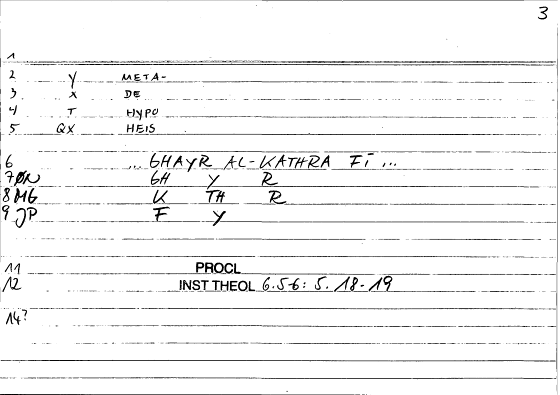 3
1
2 Y META-
3 X DE
4 T HYPO
5 QX HEIS
6 ... GHAYR AL-KATHRA FĪ ...
7 ØN GH Y R
8 MG K TH R
9 JP F Y
11 PROCL
12 INST THEOL 6.5-6: 5.18-19
14?